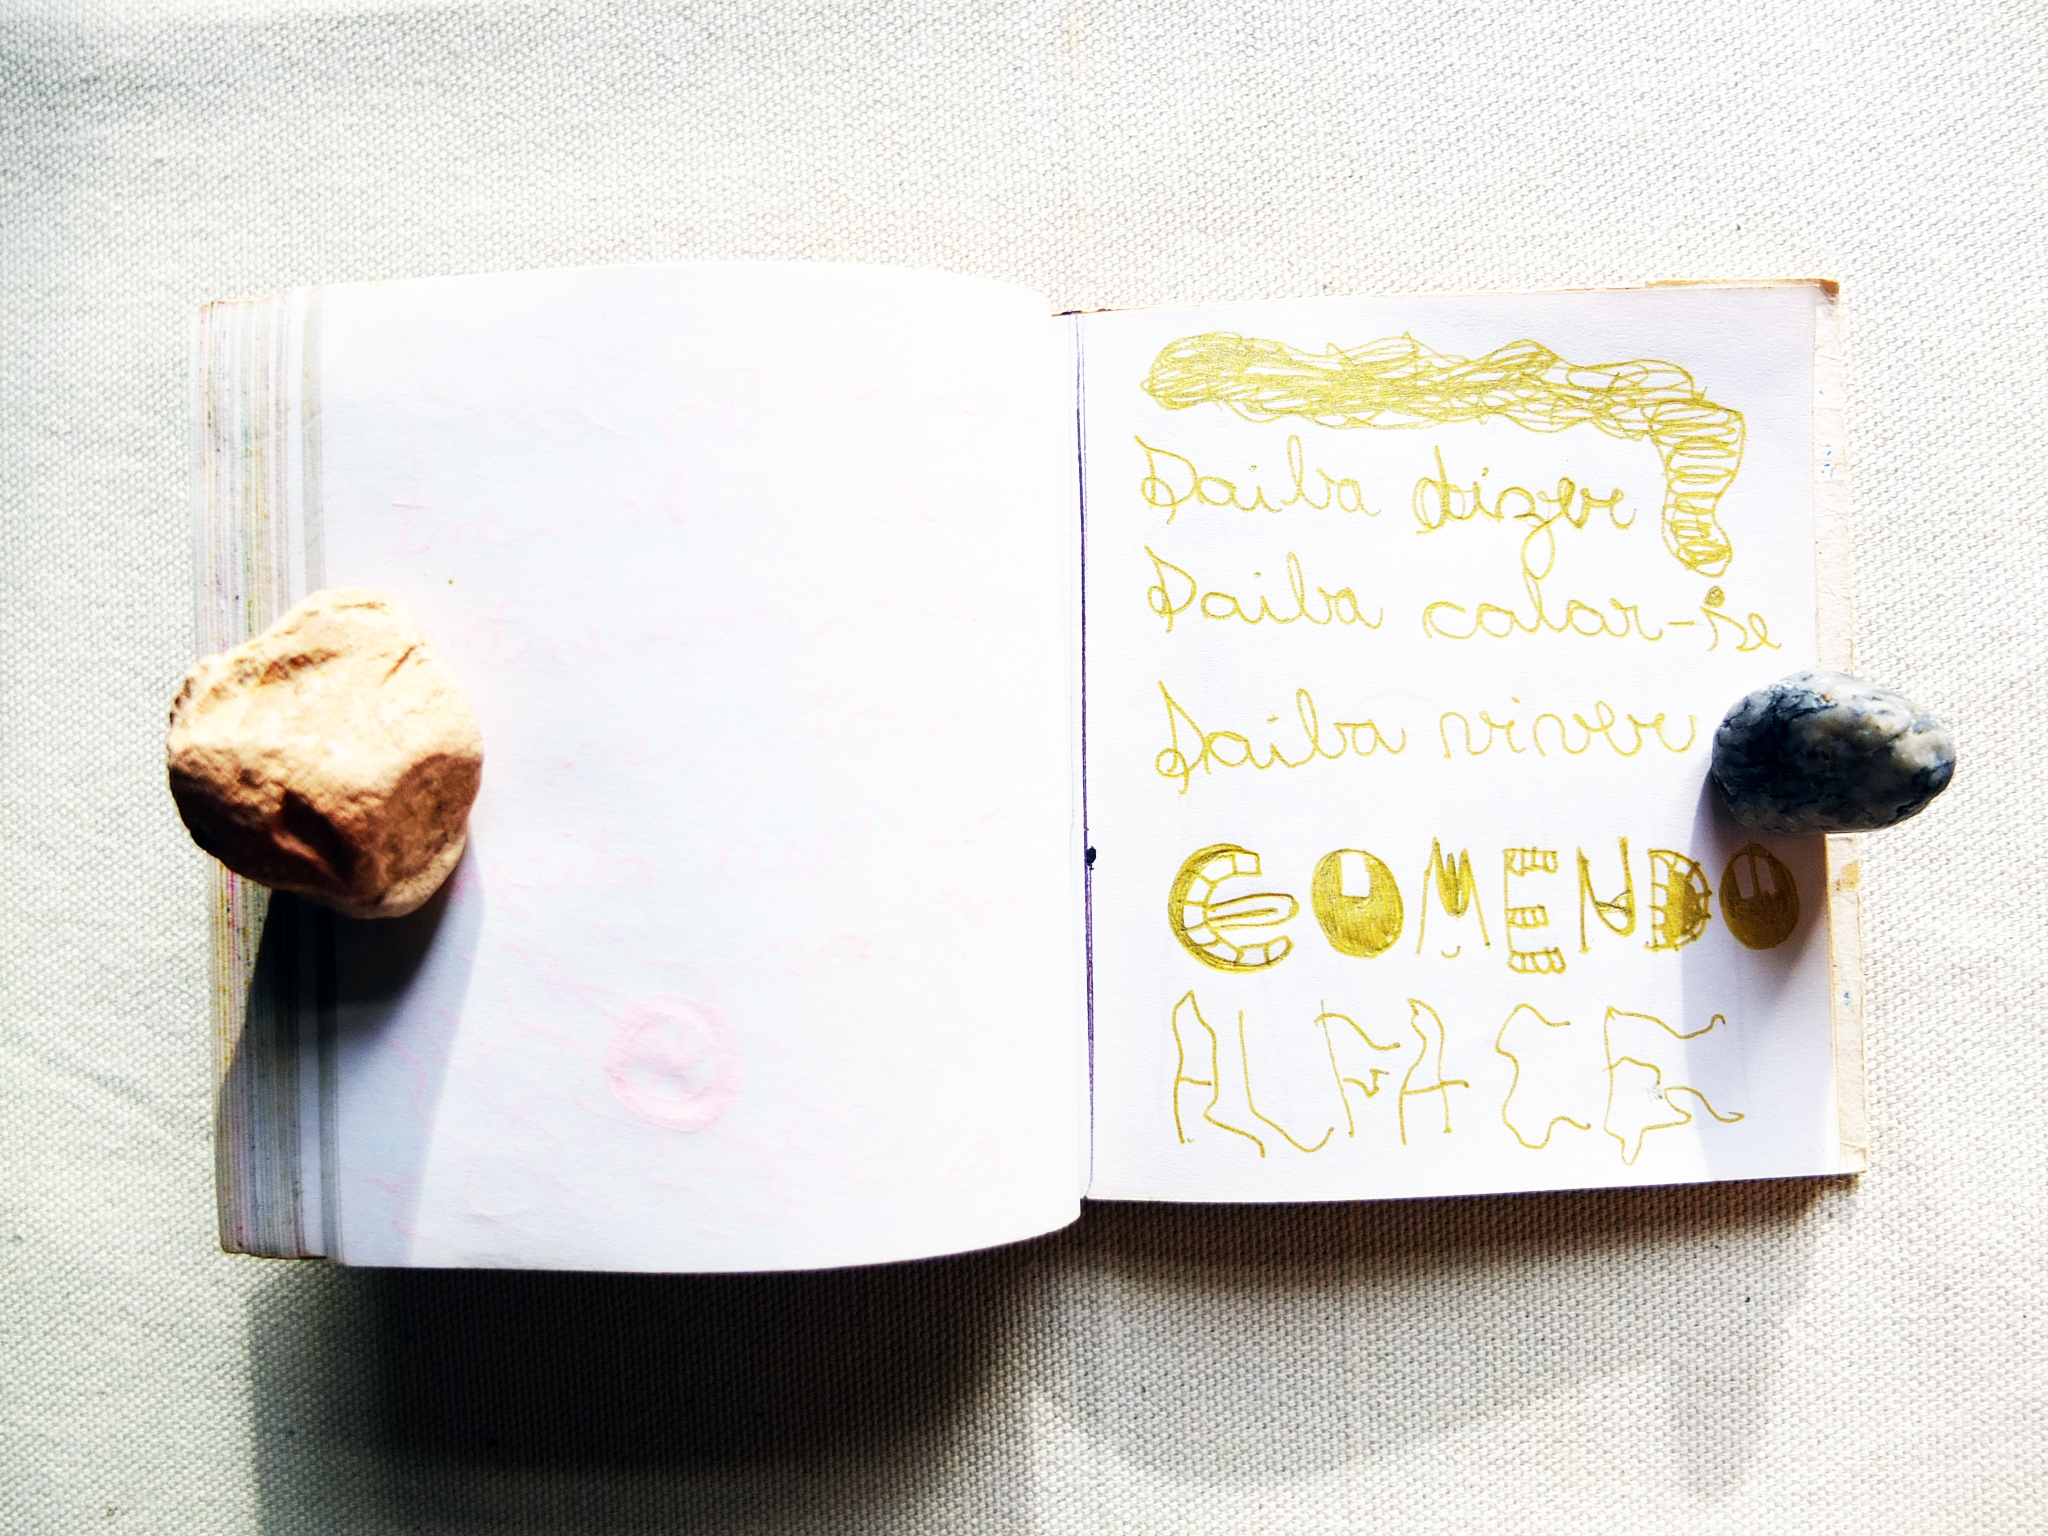 Saiba dizer
Saiba calar-se
Saiba viver
COMENDO
ALFACE